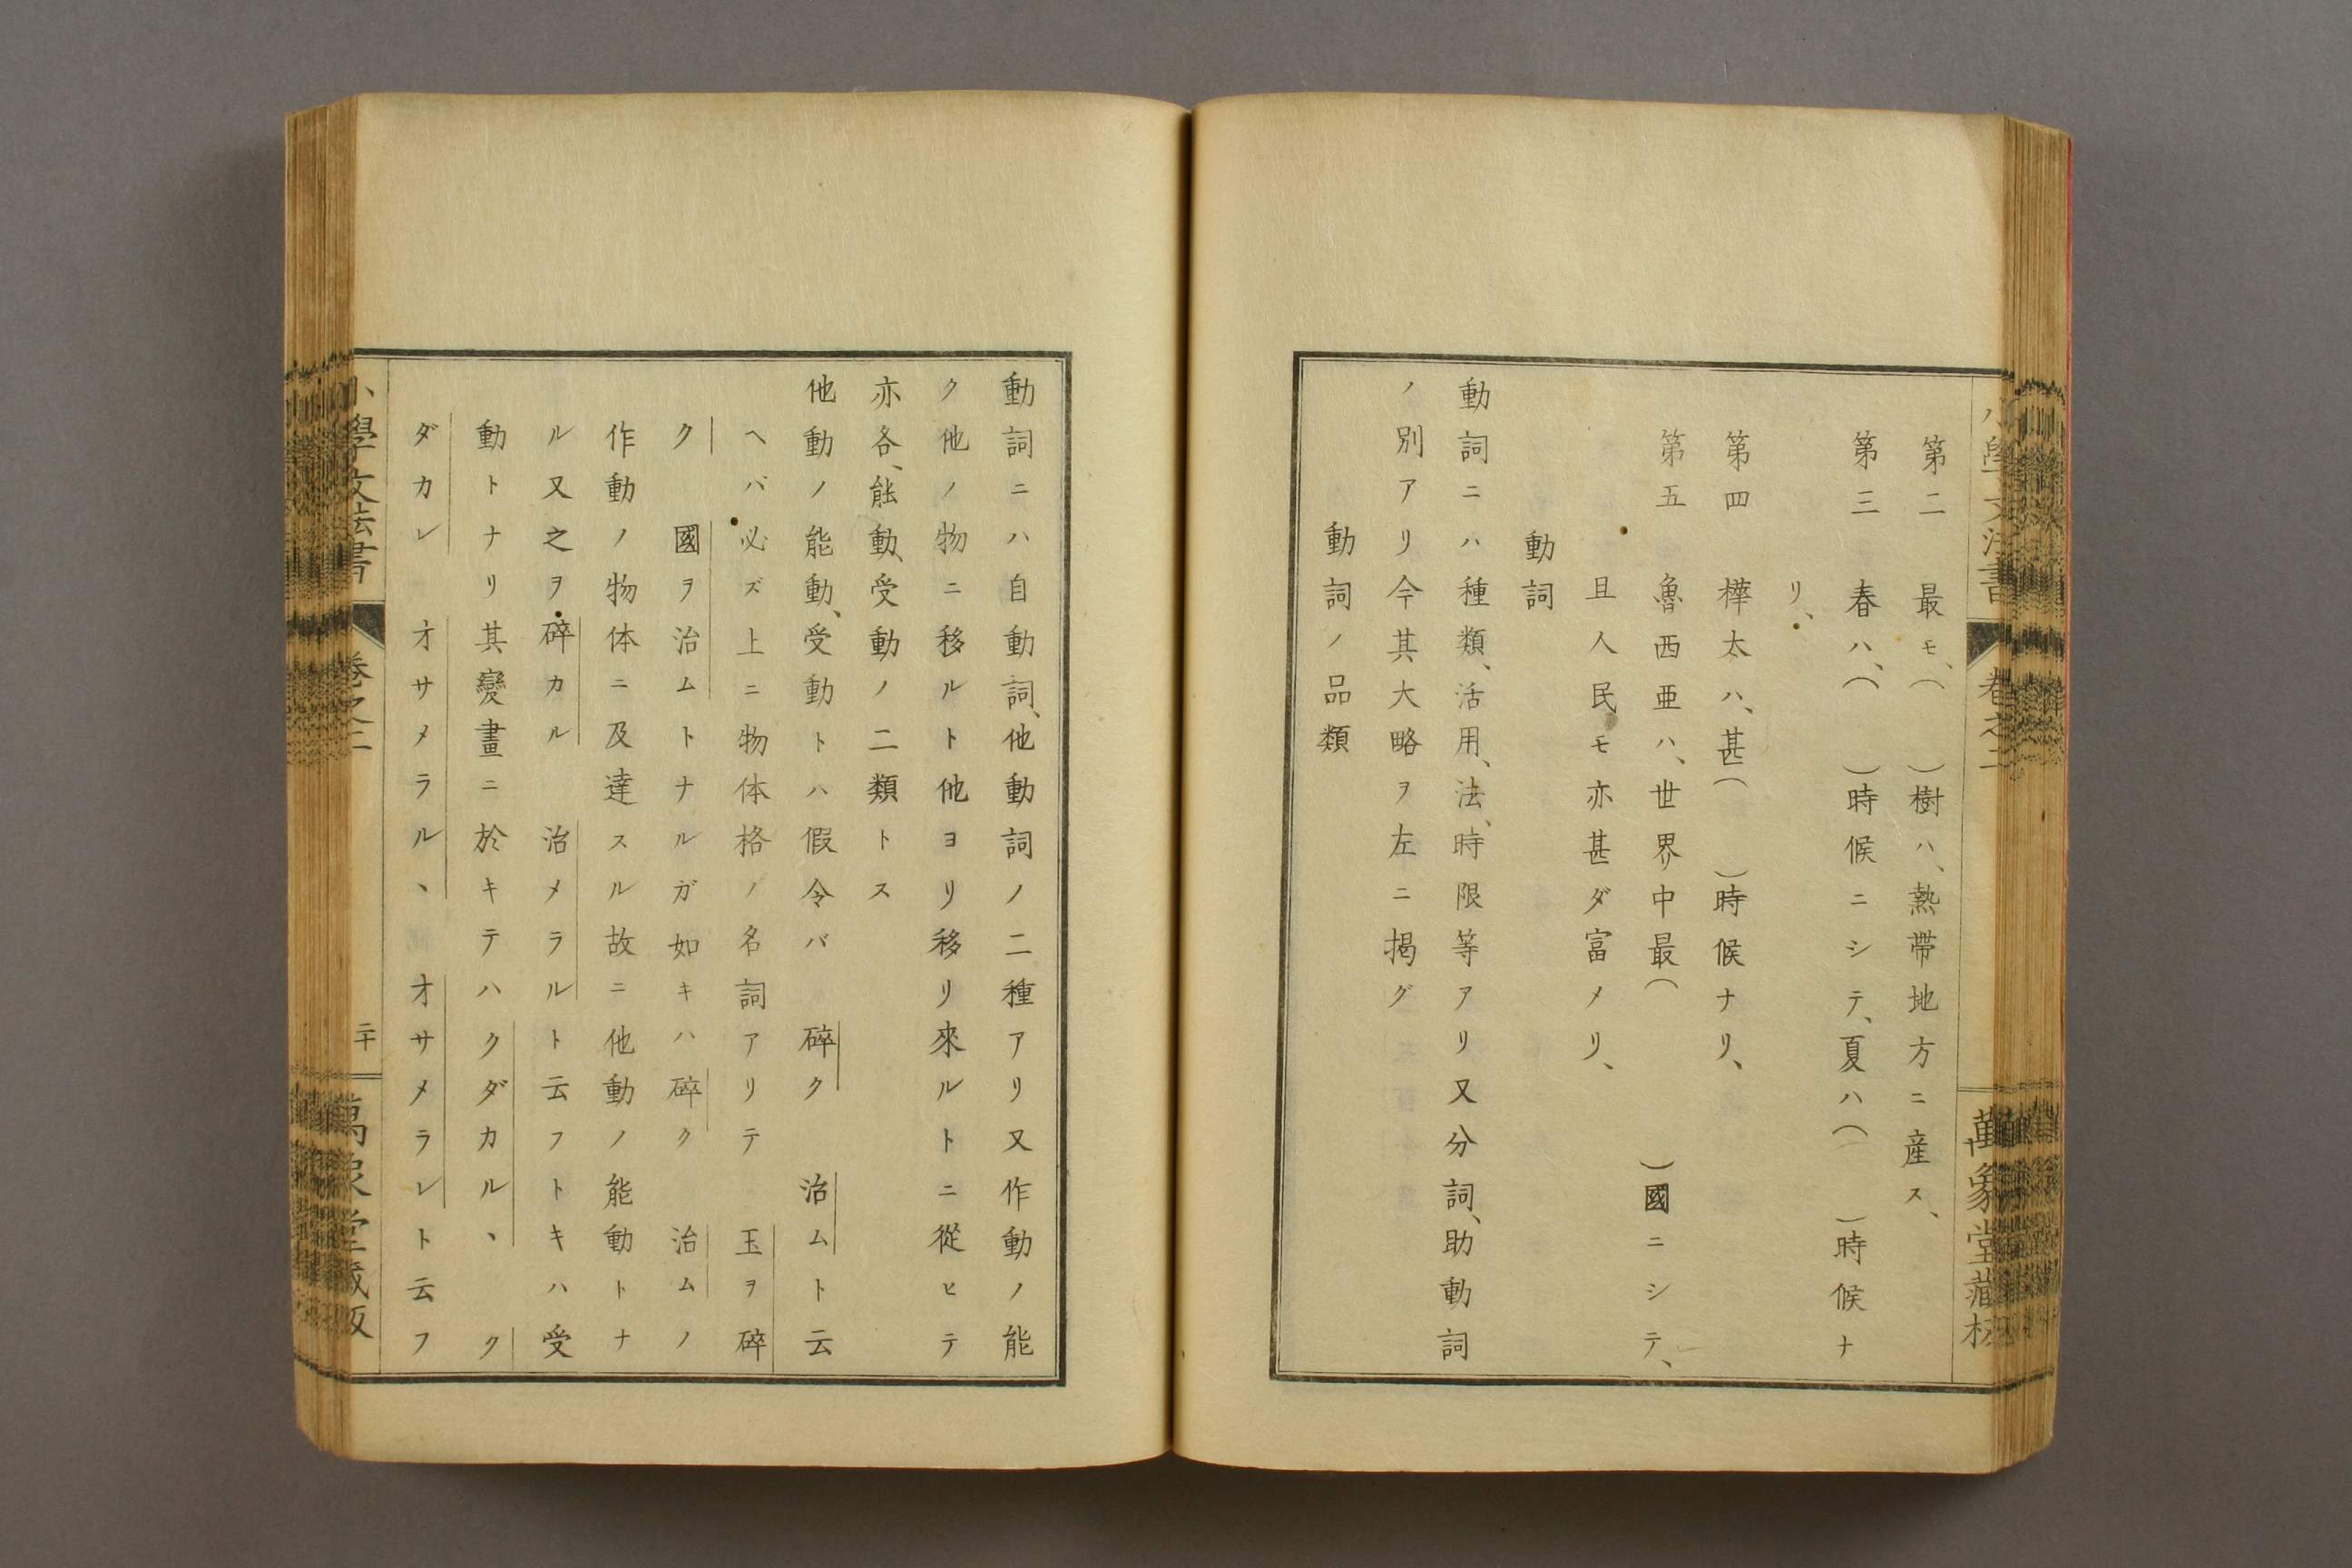 小學文法書 卷之二 萬象堂藏板
第二 最モ、( )樹ハ、熱帶地方ニ産ス、
第三 春ハ、( )時候ニシテ、夏ハ( )時候ナ
リ、
第四 樺太ハ、甚( )時候ナリ、
第五 魯西亜ハ、世界中最( )國ニシテ、
且人民モ亦甚ダ富メリ、
動詞
動詞ニハ種類、活用、法、時限等アリ又分詞、助動詞
ノ別アリ今其大略ヲ左ニ掲グ
動詞ノ品類
動詞ニハ自動詞、他動詞ノ二種アリ又作動ノ能
ク他ノ物ニ移ルト他ヨリ移リ來ルトニ從ヒテ
亦各、能動、受動ノ二類トス
他動ノ能動、受動トハ假令バ 碎ク 治ムト云
ヘバ必ズ上ニ物体格ノ名詞アリテ 玉ヲ碎
ク 國ヲ治ムトナルガ如キハ碎ク 治ムノ
作動ノ物体ニ及達スル故ニ他動ノ能動トナ
ル又之ヲ碎カル 治メラルト云フトキハ受
動トナリ其變畫ニ於キテハクダカルヽ ク
ダカレ オサメラルヽ オサメラレト云フ
小學文法書 卷之二 二十 萬象堂藏板